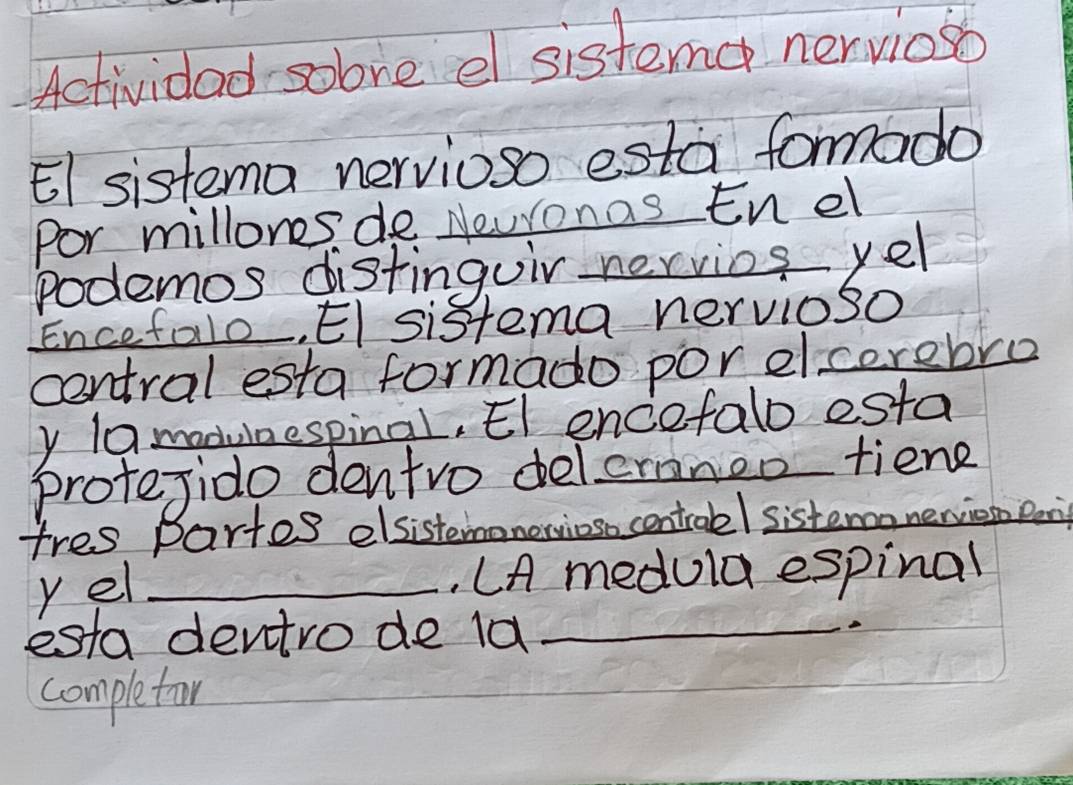 Actividad sobre el sistema nervioso
El sistema nervioso esta fomado
Por millones de Neuronas En el
podemos distinguir nervios y el
Encefalo. El sistema nervioso
central esta formado por el cerebro
y la medula espinal. El encefalo esta
protejido dentro del craneo tiene
tres partes el sistema nervioso central el sistema nervioso Peri
y el ____________. LA medula espinal
esta dentro de la ____________.
completar